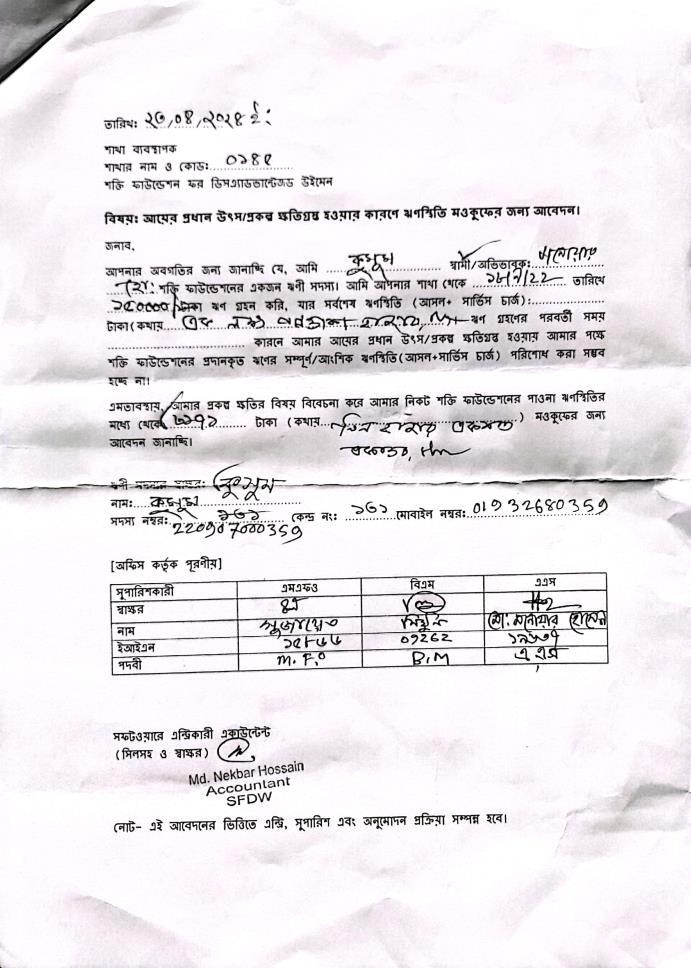 তারিখ: ২৩,০৪,২০২৪ ইং
শাখা ব্যবস্থাপক
শাখার নাম ও কোড: ০১৪৫
শক্তি ফাউন্ডেশন ফর ডিসএ্যাডভান্টেজড উইমেন
বিষয়: আয়ের প্রধান উৎস/প্রকল্প ক্ষতিগ্রস্থ হওয়ার কারণে ঋণস্থিতি মওকুফের জন্য আবেদন।
জনাব,
আপনার অবগতির জন্য জানাচ্ছি যে, আমি কুসুম স্বামী/অভিভাবক:
শক্তি ফাউন্ডেশনের একজন ঋণী সদস্য। আমি আপনার শাখা থেকে তারিখে
১৫০০০০/ টাকা ঋণ গ্রহন করি, যার সর্বশেষ ঋণস্থিতি (আসল+ সার্ভিস চার্জ):
টাকা (কথায় এক লক্ষ পঞ্চাশ হাজার ঋণ গ্রহণের পরবর্তী সময়
কারনে আমার আয়ের প্রধান উৎস/প্রকল্প ক্ষতিগ্রস্থ হওয়ায় আমার পক্ষে
শক্তি ফাউন্ডেশনের প্রদানকৃত ঋণের সম্পূর্ণ/আংশিক ঋণস্থিতি(আসল+সার্ভিস চার্জ) পরিশোধ করা সম্ভব
হচ্ছে না।
এমতাবস্থায়, আমার প্রকল্প ক্ষতির বিষয় বিবেচনা করে আমার নিকট শক্তি ফাউন্ডেশনের পাওনা ঋণস্থিতির
মধ্যে থেকে টাকা (কথায় তিন হাজার একশত ) মওকুফের জন্য
আবেদন জানাচ্ছি।
ঋণী সদস্যের স্বাক্ষর: কুসুম
নাম: কুসুম
সদস্য নম্বর: ১৬১ কেন্দ্র নং: ১৬১ মোবাইল নম্বর: 01932680359
220907000359
[অফিস কর্তৃক পূরণীয়]
সুপারিশকারী এমএফও বিএম এএস
স্বাক্ষর
নাম মিঠুন মো: মনোয়ার হোসেন
ইআইএন ১৫৮৬৬ 07262
পদবী M.F.O B.M এ এস
সফটওয়ারে এন্ট্রিকারী একাউন্টেন্ট
(সিলসহ ও স্বাক্ষর)
Md. Nekbar Hossain
Accountant
SFDW
নোট- এই আবেদনের ভিত্তিতে এন্ট্রি, সুপারিশ এবং অনুমোদন প্রক্রিয়া সম্পন্ন হবে।